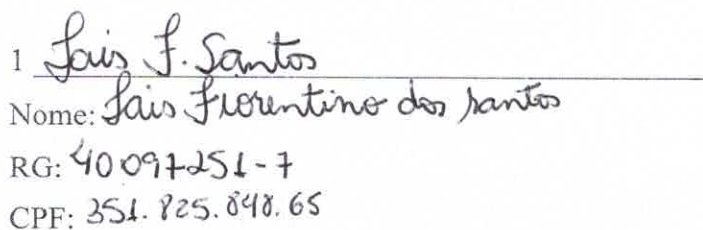 1 Lais F. Santos
Nome: Lais Fiorentino dos Santos
RG: 40097251-7
CPF: 351.825.848.65